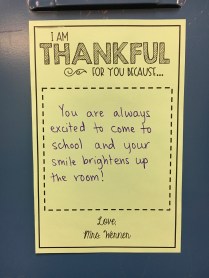 I AM
THANKFUL
FOR YOU BECAUSE...
You are always
excited to come to
school and your
smile brightens up
the room!
Love,
Mrs. Wernen